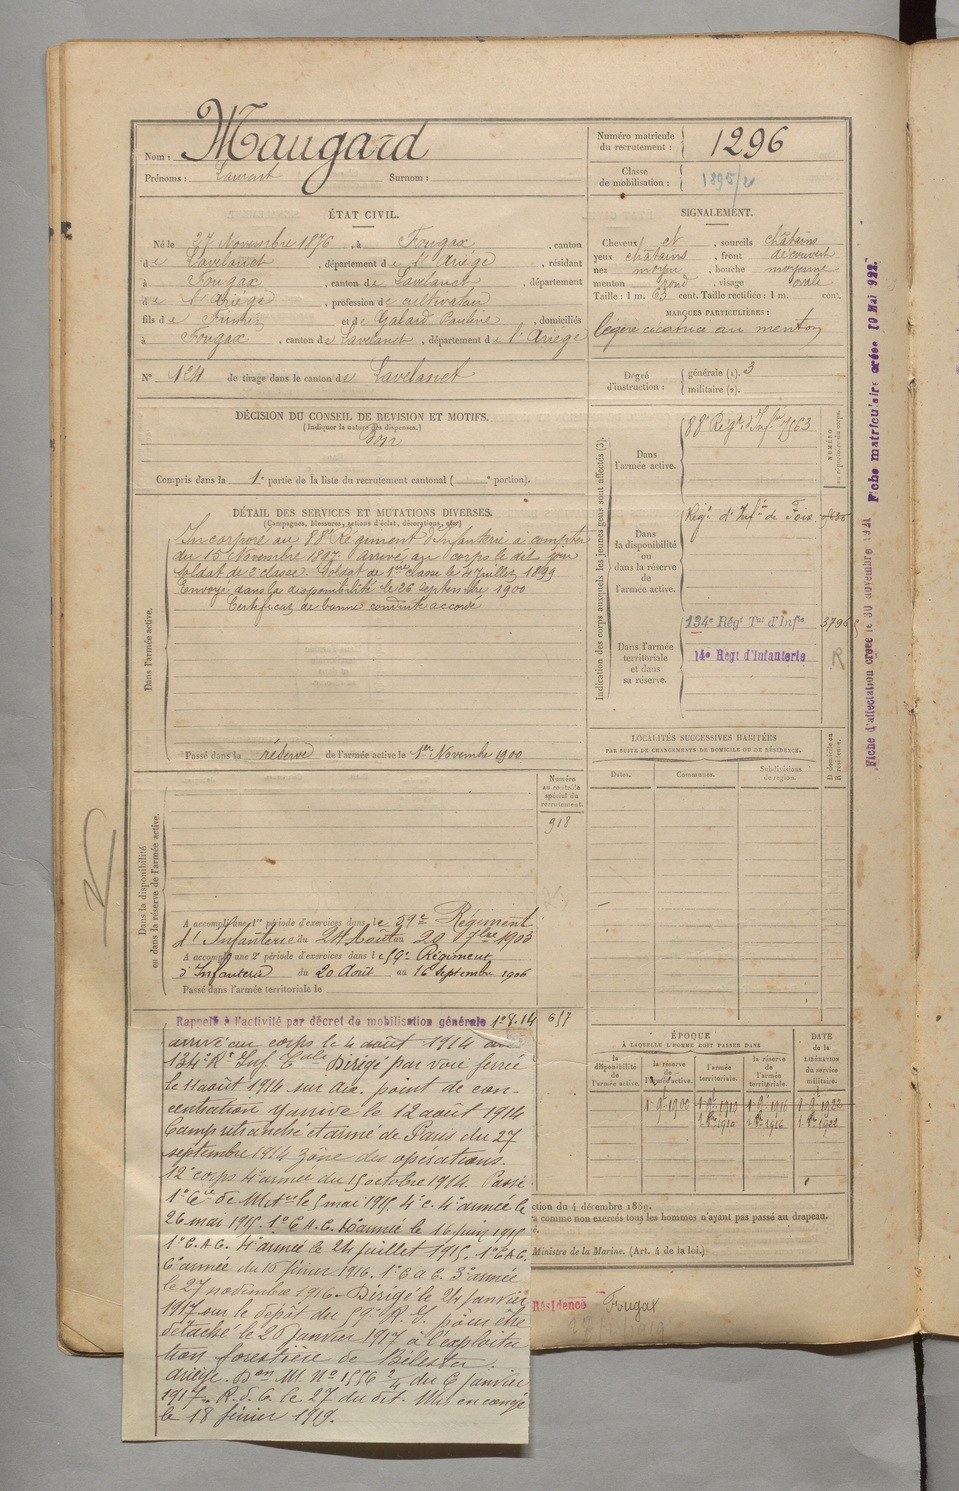 Nom : Maugard
Prénoms : Laurent Surnom :
Numéro matricule du recrutement : 1296
Classe de mobilisation : 1895/2
ÉTAT CIVIL.
Né le 27 Novembre 1876, à Fougax, canton
de Lavelanet, département de l'Ariège, résidant
à Fougax, canton de Lavelanet, département
de l'Ariège, profession de cultivateur
fils de Firmin et de Gabard Pauline, domiciliés
à Fougax, canton de Lavelanet, département de l'Ariège
N° 124 de tirage dans le canton de Lavelanet
SIGNALEMENT.
Cheveux et, sourcils châtains
yeux châtains, front découvert
nez moyen, bouche moyenne
menton rond, visage ovale
Taille : 1 m. 63 cent. Taille rectifiée : 1 m. cent.
MARQUES PARTICULIÈRES :
légère cicatrice au menton
Degré d'instruction : générale (1). 3
militaire (2).
DÉCISION DU CONSEIL DE REVISION ET MOTIFS.
(Indiquer la nature des dispenses.)
Bon
Compris dans la 1e partie de la liste du recrutement cantonal ( e portion).
DÉTAIL DES SERVICES ET MUTATIONS DIVERSES.
(Campagnes, blessures, actions d'éclat, décorations, etc.)
Dans l'armée active.
Incorporé au 88e Régiment d'Infanterie à compter
du 15 Novembre 1897. Arrivé au corps le dit jour
Soldat de 2e classe. Soldat de 1ère classe le 4 Juillet 1899
Envoyé dans la disponibilité le 26 Septembre 1900
Certificat de bonne conduite accordé
Passé dans la réserve de l'armée active le 1er Novembre 1900
Indication des corps auxquels les jeunes gens sont affectés (3).
NUMÉRO au répertoire du corps.
Dans l'armée active.
88e Régt d'Infie 7563
Dans la disponibilité ou dans la réserve de l'armée active.
Régt d'Infie de Foix
Dans l'armée territoriale et dans sa réserve.
134e Régt Tal d'Infie 3796
14e Regt d'Infanterie R
LOCALITÉS SUCCESSIVES HABITÉES
PAR SUITE DE CHANGEMENTS DE DOMICILE OU DE RÉSIDENCE.
Dates. Communes. Subdivisions de région. D domicile ou R résidence.
Dans la disponibilité ou dans la réserve de l'armée active.
Numéro au contrôle spécial du recrutement.
918
A accompli une 1re période d'exercices dans le 59e Régiment
d'Infanterie du 24 Août au 20 7bre 1903
A accompli une 2e période d'exercices dans le 59e Régiment
d'Infanterie du 20 Août au 16 Septembre 1906
Passé dans l'armée territoriale le
Rappelé à l'activité par décret de mobilisation générale 1er 8.14 657
arrivé au corps le 4 août 1914 au
134e Rt Inf. Eale Dirigé par voie ferrée
le 11 août 1914 sur div. point de con-
centration y arrive le 12 août 1914
Camp retranché et armé de Paris du 27
septembre 1914 zone des opérations.
12e corps 4e armée du 15 octobre 1914. Passé
1e Cie de le 5 mai 1915. 4e C. 4e armée le
26 mai 1915. 1e C.A.C. 10e armée le 16 juin 1915
1e C.A.C. 4e armée le 24 juillet 1915. 1e C.A.C.
6e armée du 15 février 1916. 1e C.A.C. 3e armée
le 27 novembre 1916. Dirigé le 24 janvier
1917 sur le dépôt du 59e R.I. pour être
détaché le 26 janvier 1917 à l'exploita
tion forestière de Bélesta.
Ariège. Don M. No 1556 2/4 du 6 janvier
1917. R.d.C. le 27 du dit. Mis en congé
le 18 février 1919.
ÉPOQUE
À LAQUELLE L'HOMME DOIT PASSER DANS
la disponibilité de l'armée active. la réserve de l'armée active. l'armée territoriale. la réserve de l'armée territoriale.
DATE de la LIBÉRATION du service militaire.
1 9e 1900 1 9e 1910 1 9e 1916 1 9e 1922
1 8bre 1910 1 8bre 1916 1 8bre 1922
ction du 4 décembre 1889.
a comme non exercés tous les hommes n'ayant pas passé au drapeau.
Ministre de la Marine. (Art. 4 de la loi.)
Résidence Fougax
Fiche d'affectation créée le 30 novembre 1921 Fiche matriculaire créée 10 Mai 1922